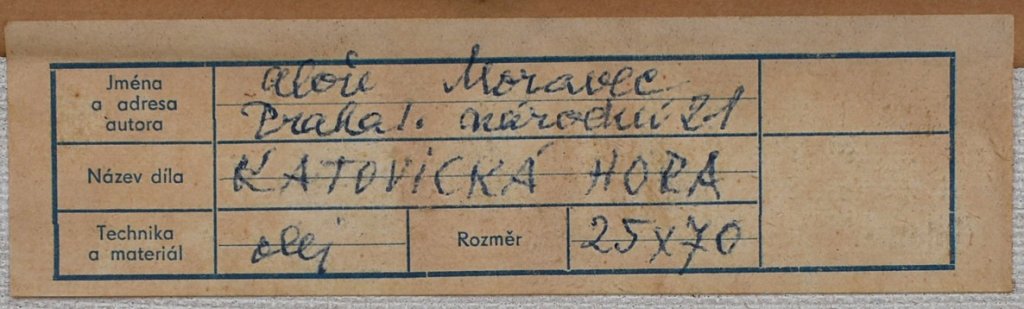 Jména
a adresa
autora
Alois Moravec
Praha 1. Národní 21
Název díla
KATOVICKÁ HORA
Technika
a materiál
olej
Rozměr
25x70